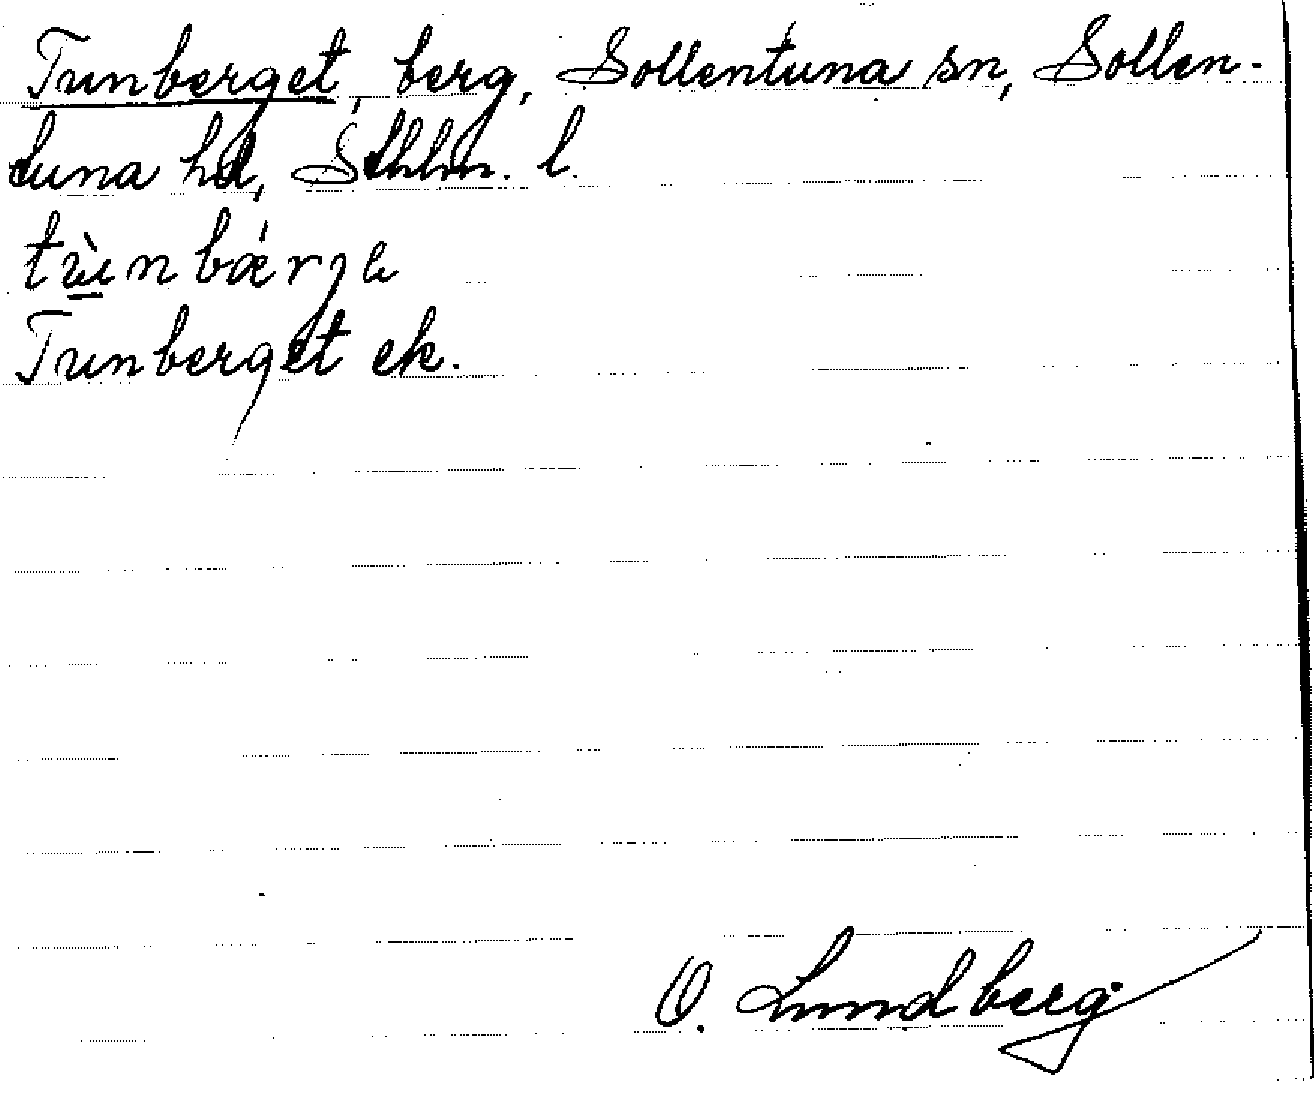 Tunberget, berg, Sollentuna sn, Sollen-
tuna hd, Sthlm. l.
tùnbǽrjə
Tunberget ek.
O. Lundberg